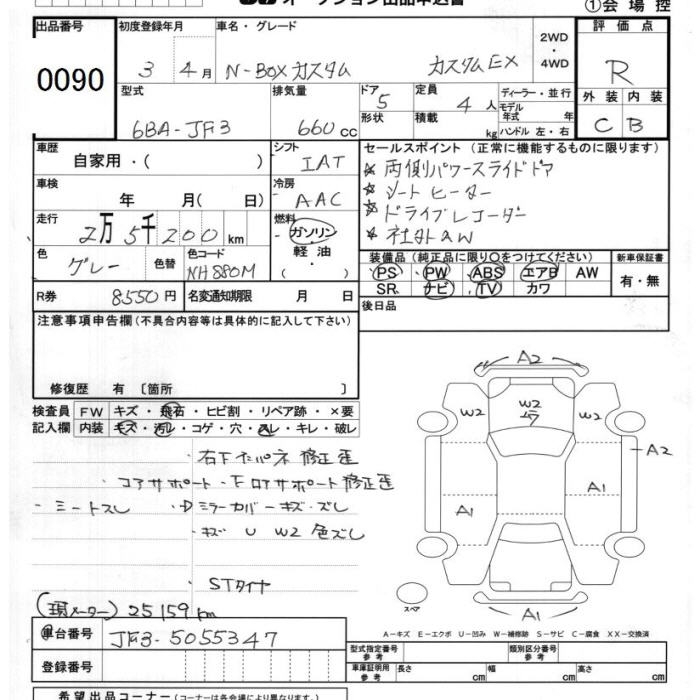 オークション出品申込書
①会場控
出品番号 初度登録年月 車名・グレード 2WD・4WD 評価点
0090
3 4月 N-BOXカスタム カスタムEX R
型式 排気量 ドア 定員 ディーラー・並行 外装 内装
6BA-JF3 660cc 5 4人 C B
形状 積載 kg モデル年式 年
ハンドル 左・右
車歴 シフト セールスポイント (正常に機能するものに限ります)
自家用・( ) IAT ★両側パワースライドドア
車検 冷房 ★シートヒーター
年 月( 日) AAC ★ドライブレコーダー
走行 燃料 ★社外aw
2万5千200km ガソリン
軽油
( ・ )
色 色替 色コード 装備品 (純正品に限り○をつけてください) 新車保証書
グレー NH880M PS PW ABS エアB AW 有・無
SR ナビ TV カワ
R券 8550円 名変通知期限 月 日 後日品
注意事項申告欄(不具合内容等は具体的に記入して下さい)
修復歴 有 〔箇所 〕
検査員記入欄 FW キズ・飛石・ヒビ割・リペア跡・×要
内装 キズ・汚レ・コゲ・穴・スレ・キレ・破レ
・コアサポート・
修正歪
・シートスレ ・Dミラーカバーキズ・ズレ
・キズ U W2 色ズレ
STタイヤ
(現メーター) 25159km
A2
W2 W2 W2
A2
A1 A1
スペア A1
A-キズ E-エクボ U-凹み W-補修跡 S-サビ C-腐食 XX-交換済
車台番号 JF3-5055347
型式指定番号 参考 類別区分番号 参考
登録番号 車庫証明用 参考 長さ cm 幅 cm 高さ cm
希望出品コーナー (コーナーは各会場により異なります)